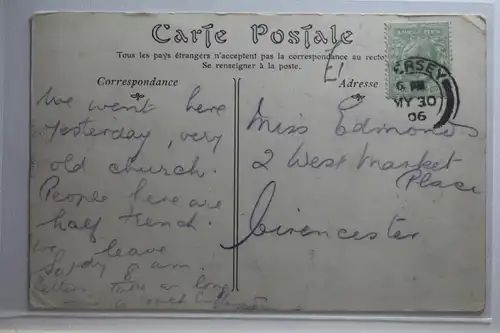 Carte Postale
Tous les pays étrangers n'acceptent pas la correspondance au recto
Se renseigner à la poste.
Correspondance
Adresse
ERSEY
6 PM
MY 30
06
We went here
Yesterday, very
old church.
People here are
half French.
We leave
Miss Edmonds
2 West Market
Place
Cirencester